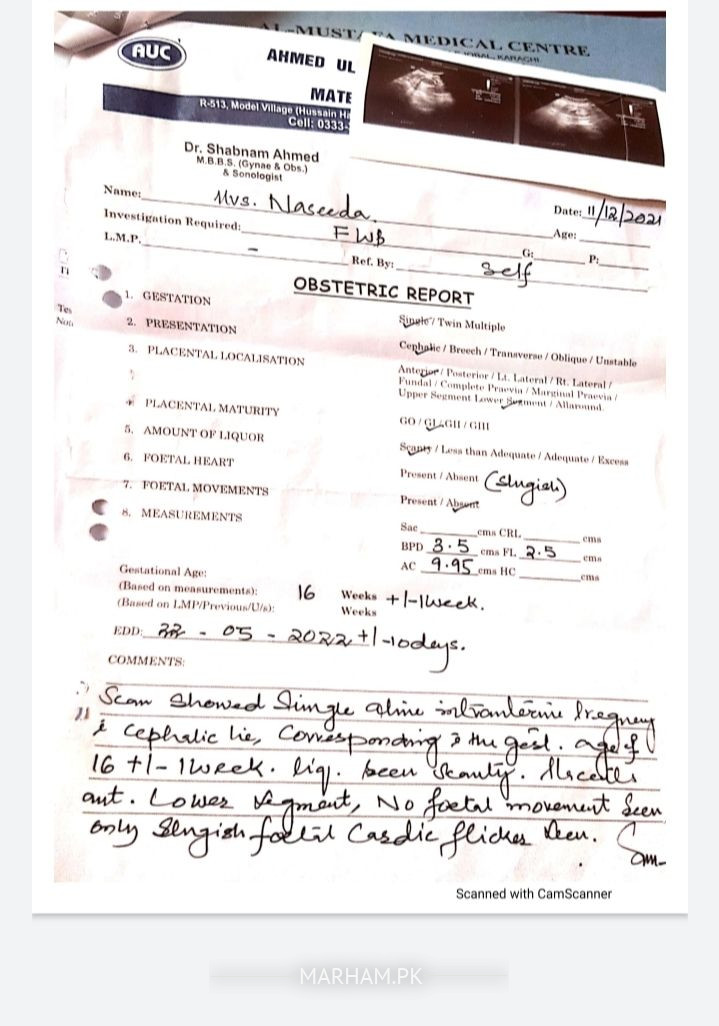 AL-MUSTA A MEDICAL CENTRE
IQBAL, KARACHI.
AUC
AHMED UL
MATE
R-513, Model Village (Hussain Ha
Cell: 0333-
Dr. Shabnam Ahmed
M.B.B.S. (Gynae & Obs.)
& Sonologist
Name: Mrs. Naseeda Date: 11/12/2021
Investigation Required: FWB Age:
L.M.P. - Ref. By: Self G: P:
OBSTETRIC REPORT
1. GESTATION Single / Twin Multiple
2. PRESENTATION Cephalic / Breech / Transverse / Oblique / Unstable
3. PLACENTAL LOCALISATION Anterior / Posterior / Lt. Lateral / Rt. Lateral /
Fundal / Complete Praevia / Marginal Praevia /
Upper Segment Lower Segment / Allaround.
PLACENTAL MATURITY GO / GI / GII / GIII
5. AMOUNT OF LIQUOR Scanty / Less than Adequate / Adequate / Excess
6. FOETAL HEART Present / Absent (Slugish)
7. FOETAL MOVEMENTS Present / Absent
8. MEASUREMENTS Sac cms CRL cms
BPD 3.5 cms FL 2.5 cms
AC 9.95 cms HC cms
Gestational Age:
(Based on measurements): 16 Weeks +/-1week.
(Based on LMP/Previous/U/s): Weeks
EDD: 22 - 05 - 2022 +/-10days.
COMMENTS:
Scan Showed Single alive intrauterine Pregnancy
cephalic lie, Corresponding the gest. age of
16 +/- 1week. liq. been Scanty. Placenta
ant. Lower Segment, No foetal movement Seen
only Slugish foetal Cardic flicker Seen.
Scanned with CamScanner
MARHAM.PK